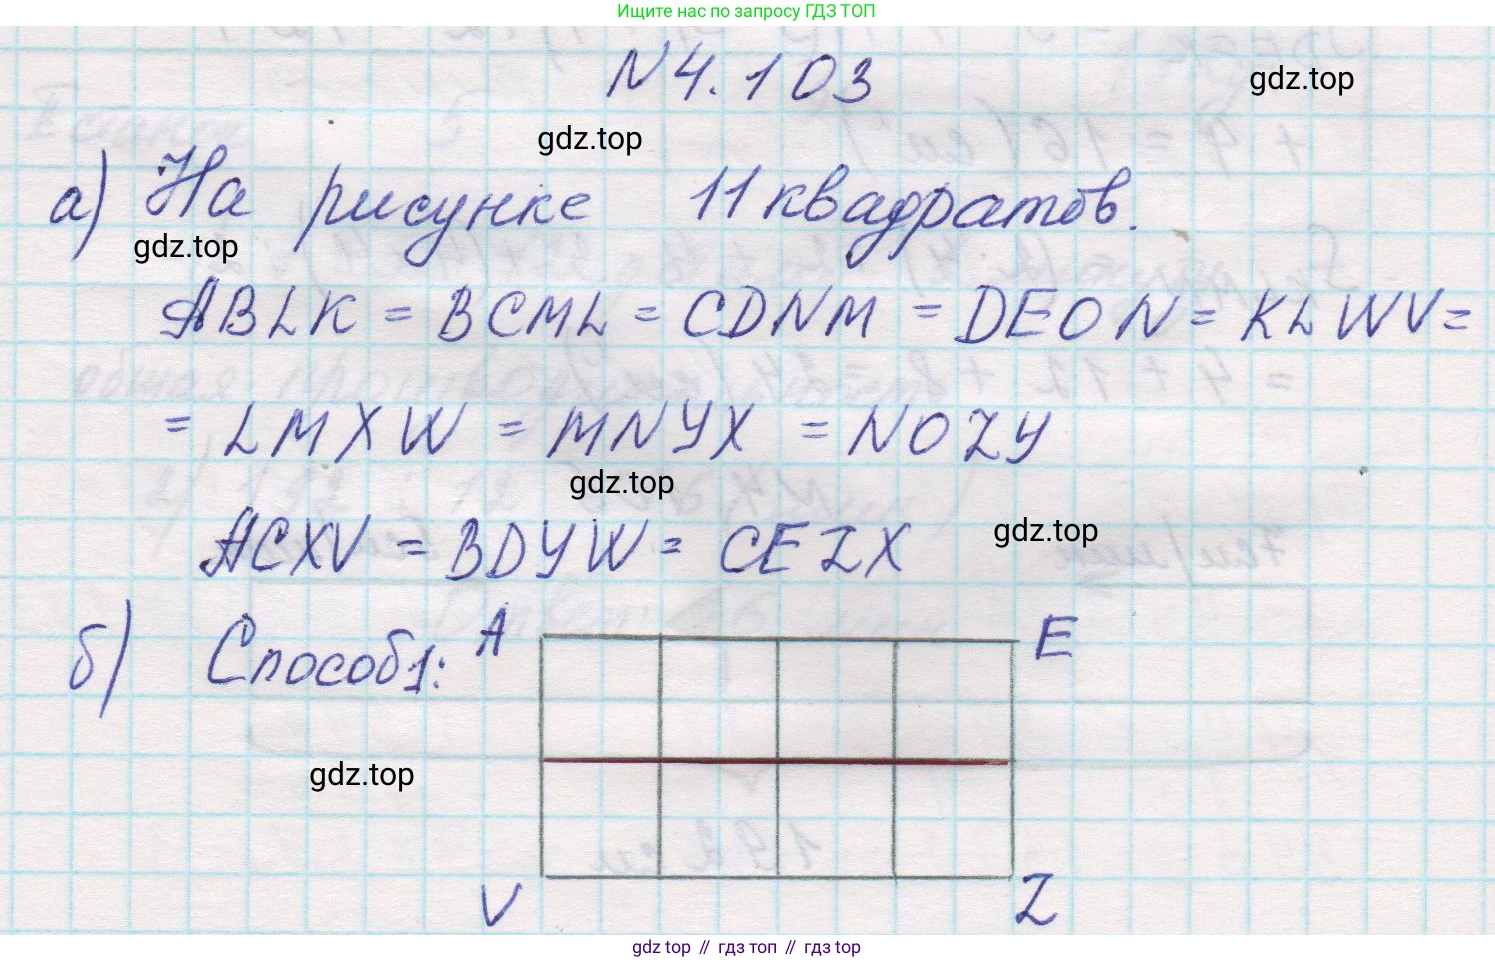 Ищите нас по запросу ГДЗ ТОП
N 4.103
gdz.top
gdz.top
а) На рисунке 11 квадратов.
gdz.top
ABLK = BCML = CDNM = DEON = KLWV =
= LMXW = MNYX = NOZY
gdz.top
ACXV = BDYW = CEZX
gdz.top
б) Способ 1: A E
gdz.top
V Z
gdz top // гдз топ // gdz top